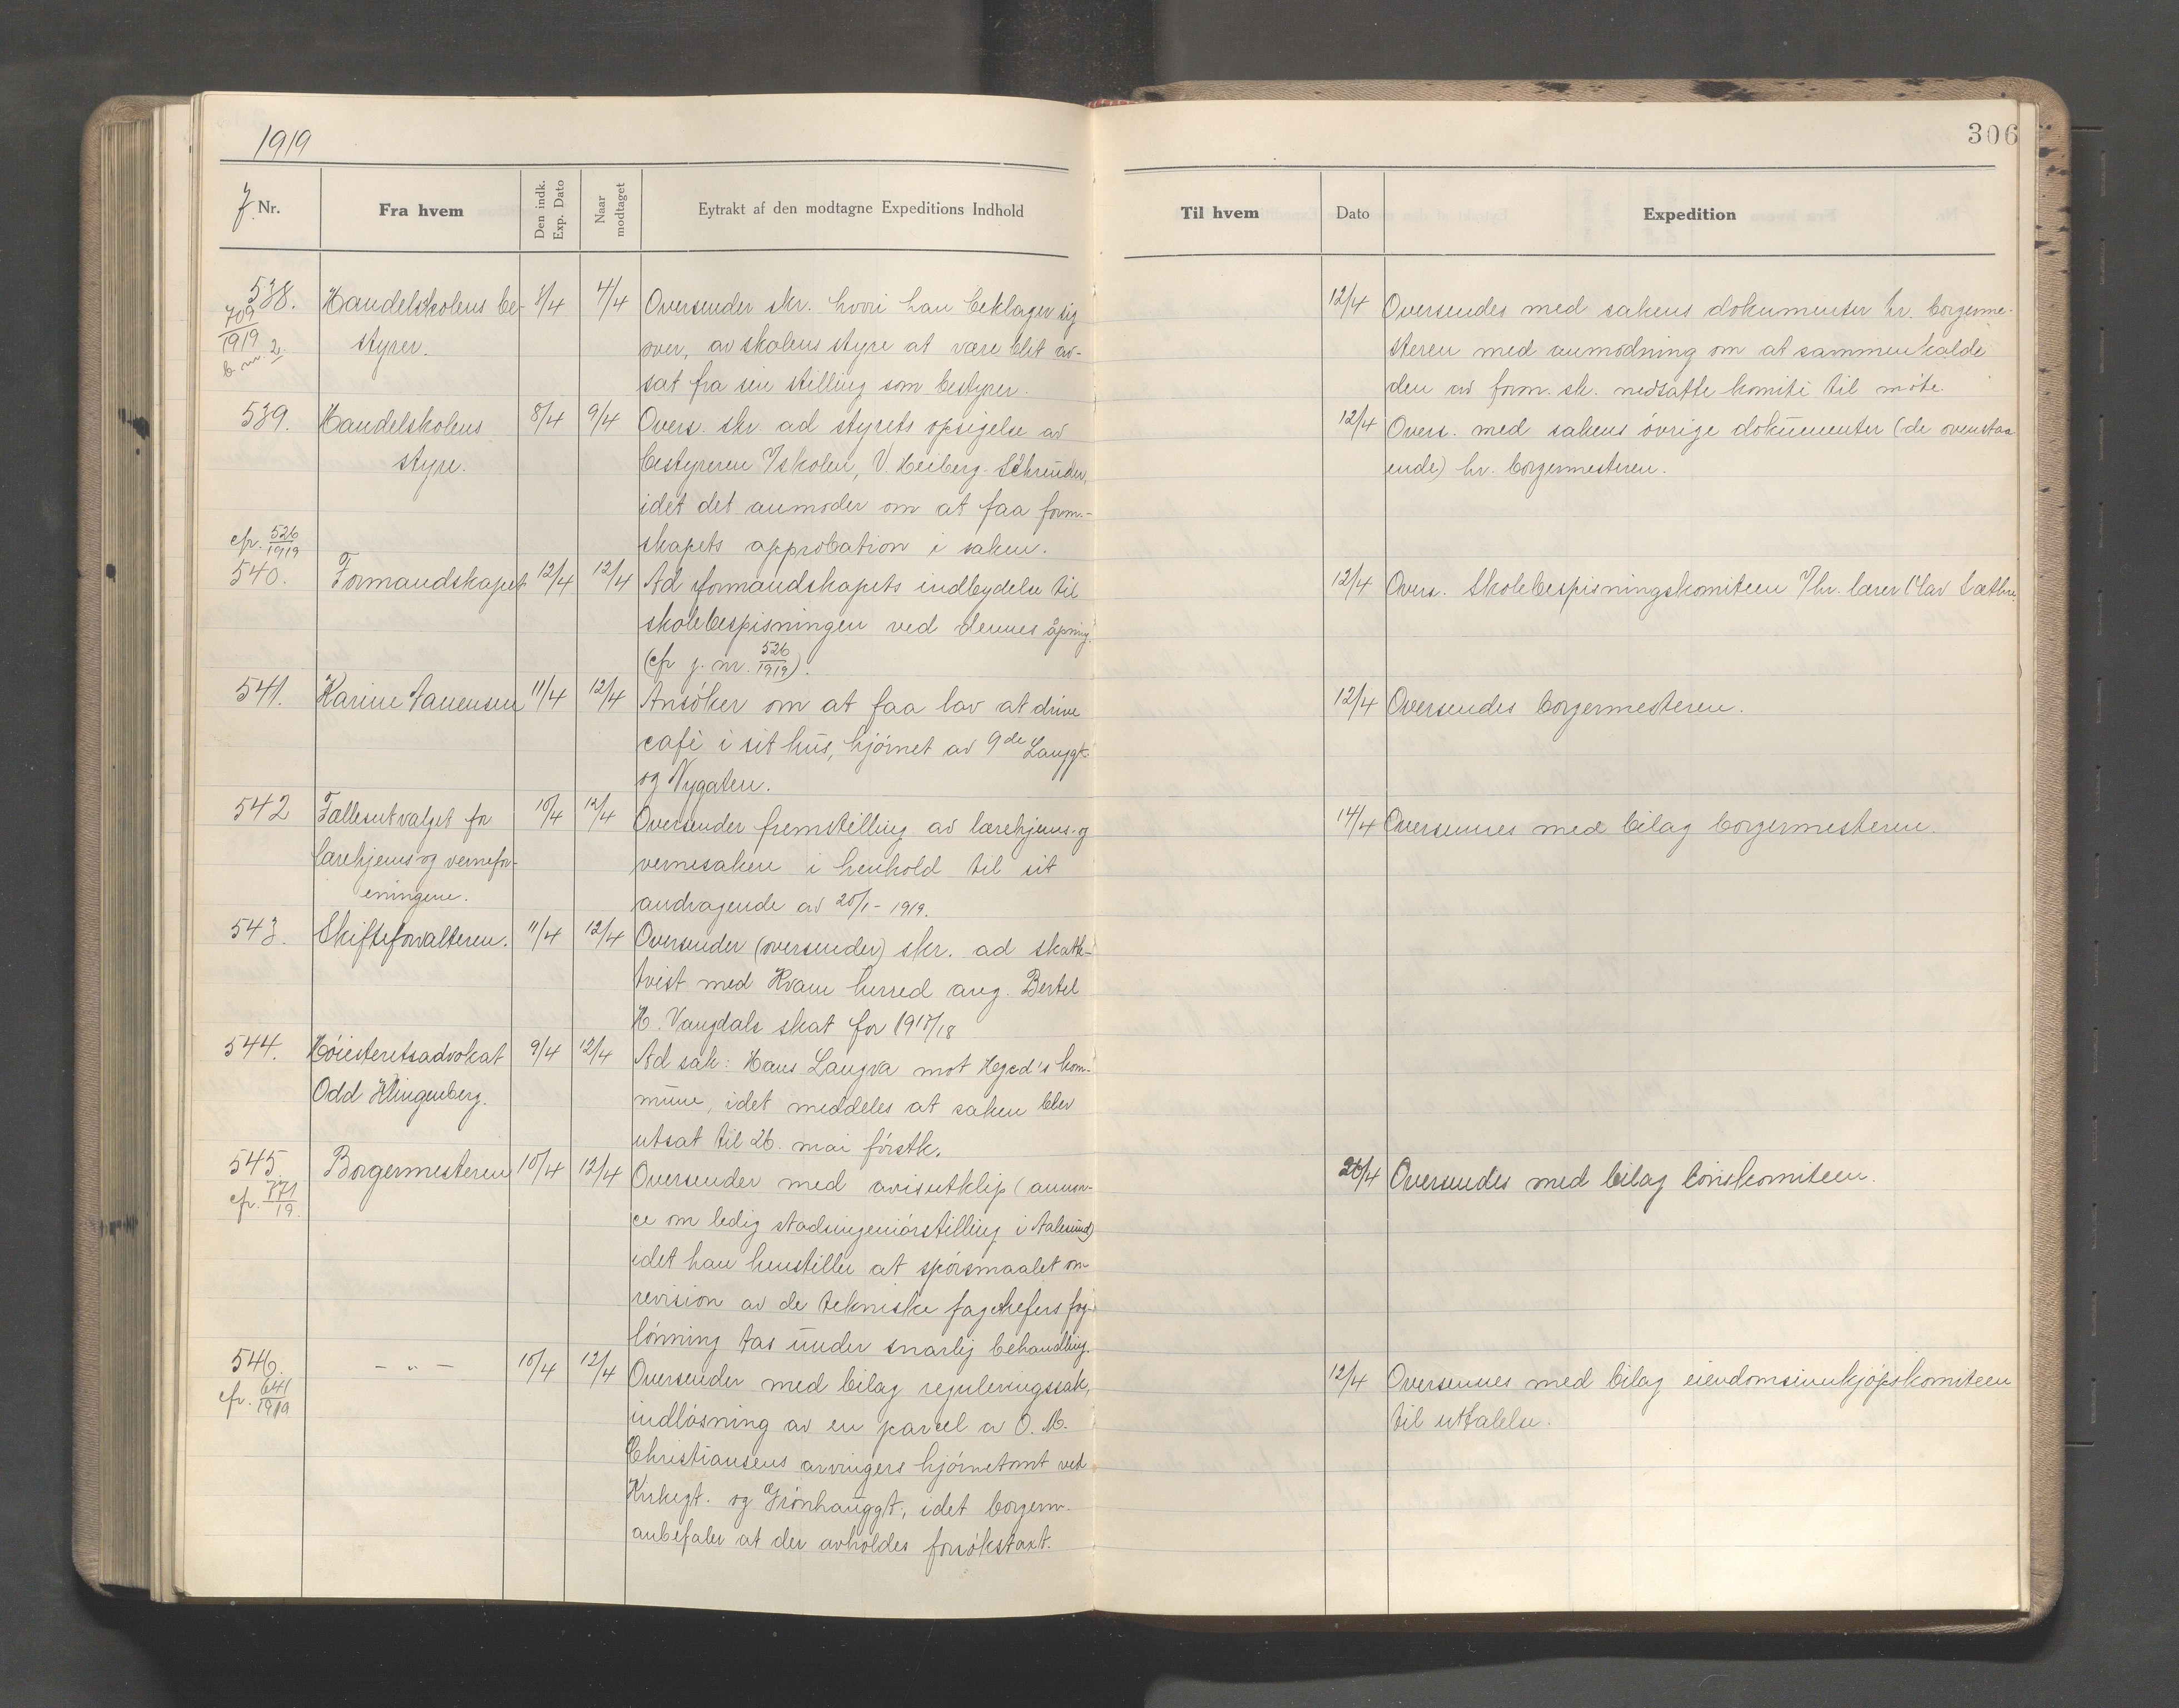 1919
306
J. Nr.
Fra hvem
Den indk. Exp. Dato
Naar modtaget
Eytrakt af den modtagne Expeditions Indhold
Til hvem
Dato
Expedition
538.
709/1919
b. nr. 2.
Handelskolens be-
styrer.
4/4
Oversender skr. hvori han beklager sig
over, av skolens styre at være blit av-
sat fra sin stilling som bestyrer.
12/4
Oversendes med sakens dokumenter hr. borgerme-
steren med anmodning om at sammenkalde
den av form. sk. nedsatte komite til møte.
539.
Handelskolens
styre.
8/4
9/4
Overs. skr. ad styrets opsigelse av
bestyreren v/skolen, V. Heiberg-Schreuder,
idet det anmoder om at faa form.-
skapets approbation i saken.
12/4
Overs. med sakens øvrige dokumenter (de ovenstaa
ende) hr. borgermesteren.
cfr. 526/1919
540.
Formandskapet
12/4
12/4
Ad formandskapets indbydelse til
skolebespisningen ved dennes åpning.
(cfr j. nr. 526/1919).
12/4
Overs. Skolebespisningskomiteen v/hr. lærer Olav Sæthre.
541.
Karine
11/4
12/4
Ansøker om at faa lov at drive
café i sit hus, hjørnet av 9de Langgt.
og Nygaten.
12/4
Oversendes borgermesteren.
542
Fællesutvalget for
lærehjems og vernefor-
eningene.
10/4
12/4
Oversender fremstilling av lærehjems- og
vernesaken i henhold til sit
andragende av 20/1 - 1919.
14/4
Oversennes med bilag borgermesteren.
543.
Skifteforvalteren.
11/4
12/4
Oversender (oversender) skr. ad skatte-
tvist med Kvam herred ang. Bertel
H. Vangdals skat for 1917/18
544.
Høiesteretsadvokat
Odd Klingenberg.
9/4
12/4
Ad sak: Hans Langva mot Hgsd's kom-
mune, idet meddeles at saken blev
utsat til 26. mai førstk.
545.
cfr. 771/19.
Borgermesteren
10/4
12/4
Oversender med avisutklip (annon-
ce om ledig stadsingeniørstilling i Aalesund)
idet han henstiller at spørsmaalet om
revision av de tekniske fagchefers
lønning tas under snarlig behandling.
26/4
Oversendes med bilag lønskomiteen.
546.
cfr. 641/1919
— " —
10/4
12/4
Oversender med bilag reguleringssak,
indløsning av en parcel av O. M.
Christiansens arvingers hjørnetomt ved
Kirkegt. og Grønhauggt., idet borgerm.
anbefaler at der avholdes forsøkstaxt.
12/4
Oversennes med bilag eiendomsinnkjøpskomiteen
til uttalelse.